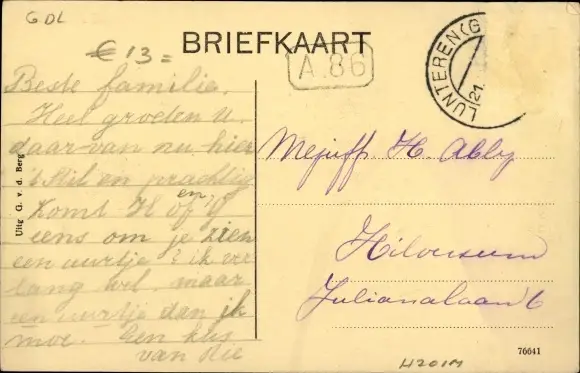 GDL
€ 13 =
BRIEFKAART
A.86
LUNTEREN (G
21
Beste familie.
Heel groeten u.
daar van nu hier
't stil en prachtig
en
Komt H of
eens om je zien
een uurtje ik ver
lang wel. maar
een uurtje dan ik
moe. Een kus
van Rie
Mejuff H. Abby
Hilversum
Julianalaan 6
Uitg G. v. d. Berg
76641
H201M